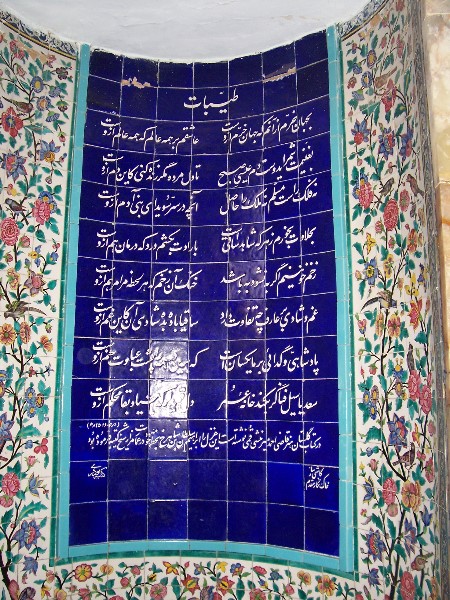 طیبات
بجهان خرم از آنم که جهان خرم ازوست عاشقم بر همه عالم که همه عالم ازوست
بغنیمت شمر ای دوست دم عیسی صبح تا دل مرده مگر زنده کنی کاین دم ازوست
نه فلک راست مسلم نه ملک را حاصل آنچه در سر سویدای بنی آدم ازوست
بحلاوت بخورم زهر که شاهد ساقیست بارادت بکشم درد که درمان هم ازوست
زخم خونینم اگر به نشود به باشد خنک آن زخم که هر لحظه مرا مرهم ازوست
غم و شادی بر عارف چه تفاوت دارد ساقیا باده بده شادی آن کاین غم ازوست
پادشاهی و گدائی بر ما یکسان است که برین در همه را پشت عبادت خم ازوست
سعدیا سیل فنا گر بکند خانه عمر دل قوی دار که بنیاد بقا محکم ازوست